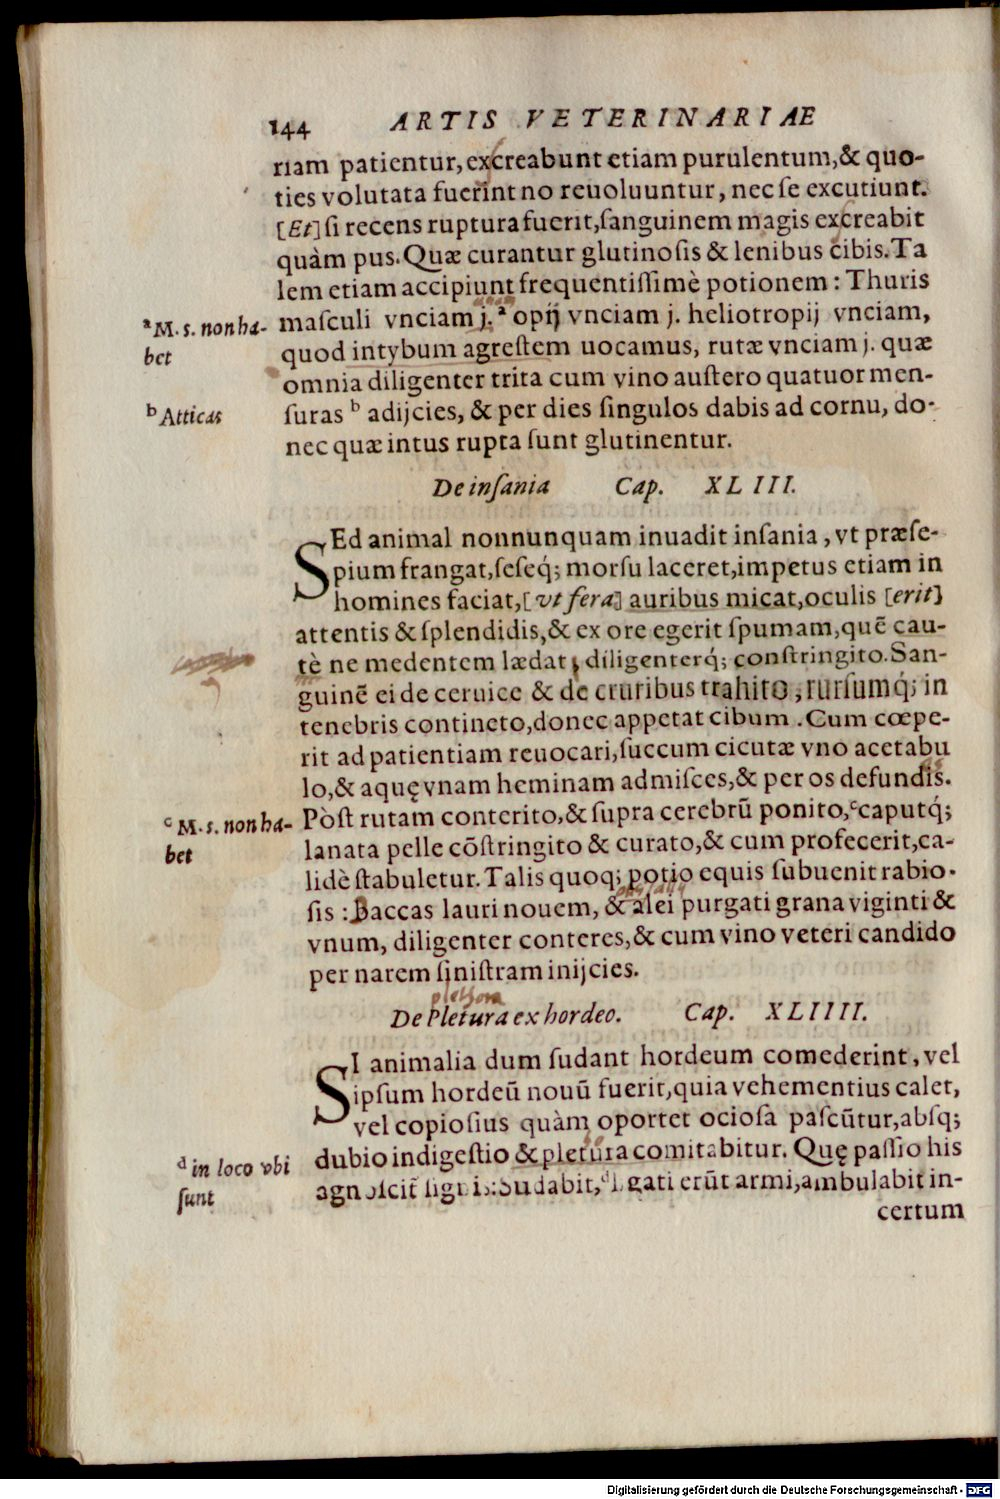 144 ARTIS VETERINARIAE
riam patientur, excreabunt etiam purulentum, & quo-
ties volutata fuerint no reuoluuntur, nec se excutiunt.
[Et] si recens ruptura fuerit, sanguinem magis excreabit
quàm pus. Quæ curantur glutinosis & lenibus cibis. Ta
lem etiam accipiunt frequentissimè potionem: Thuris
masculi vnciam j. ª opij vnciam j. heliotropij vnciam,
ª M. s. non ha-
bet
quod intybum agrestem uocamus, rutæ vnciam j. quæ
omnia diligenter trita cum vino austero quatuor men-
suras ᵇ adijcies, & per dies singulos dabis ad cornu, do-
ᵇ Atticas
nec quæ intus rupta sunt glutinentur.
De insania Cap. XLIII.
SEd animal nonnunquam inuadit insania, vt præse-
pium frangat, seseq́; morsu laceret, impetus etiam in
homines faciat, [vt fera] auribus micat, oculis [erit]
attentis & splendidis, & ex ore egerit spumam, quē cau-
tè ne medentem lædat, diligenterq́; constringito. San-
guinē ei de ceruice & de cruribus trahito, rursumq́; in
tenebris contineto, donec appetat cibum. Cum cœpe-
rit ad patientiam reuocari, succum cicutæ vno acetabu
lo, & aquę vnam heminam admisces, & per os defundis.
Pòst rutam conterito, & supra cerebrū ponito, ᶜ caputq́;
ᶜ M. s. non ha-
bet
lanata pelle cōstringito & curato, & cum profecerit, ca-
lidè stabuletur. Talis quoq; potio equis subuenit rabio-
sis: Baccas lauri nouem, & alei purgati grana viginti &
vnum, diligenter conteres, & cum vino veteri candido
per narem sinistram inijcies.
plethora
De Pletura ex hordeo. Cap. XLIIII.
SI animalia dum sudant hordeum comederint, vel
ipsum hordeū nouū fuerit, quia vehementius calet,
vel copiosius quàm oportet ociosa pascūtur, absq;
dubio indigestio & pletura comitabitur. Quę passio his
ᵈ in loco vbi
sunt
agnoscit signis: Sudabit, ᵈ ligati erūt armi, ambulabit in-
certum
Digitalisierung gefördert durch die Deutsche Forschungsgemeinschaft - DFG